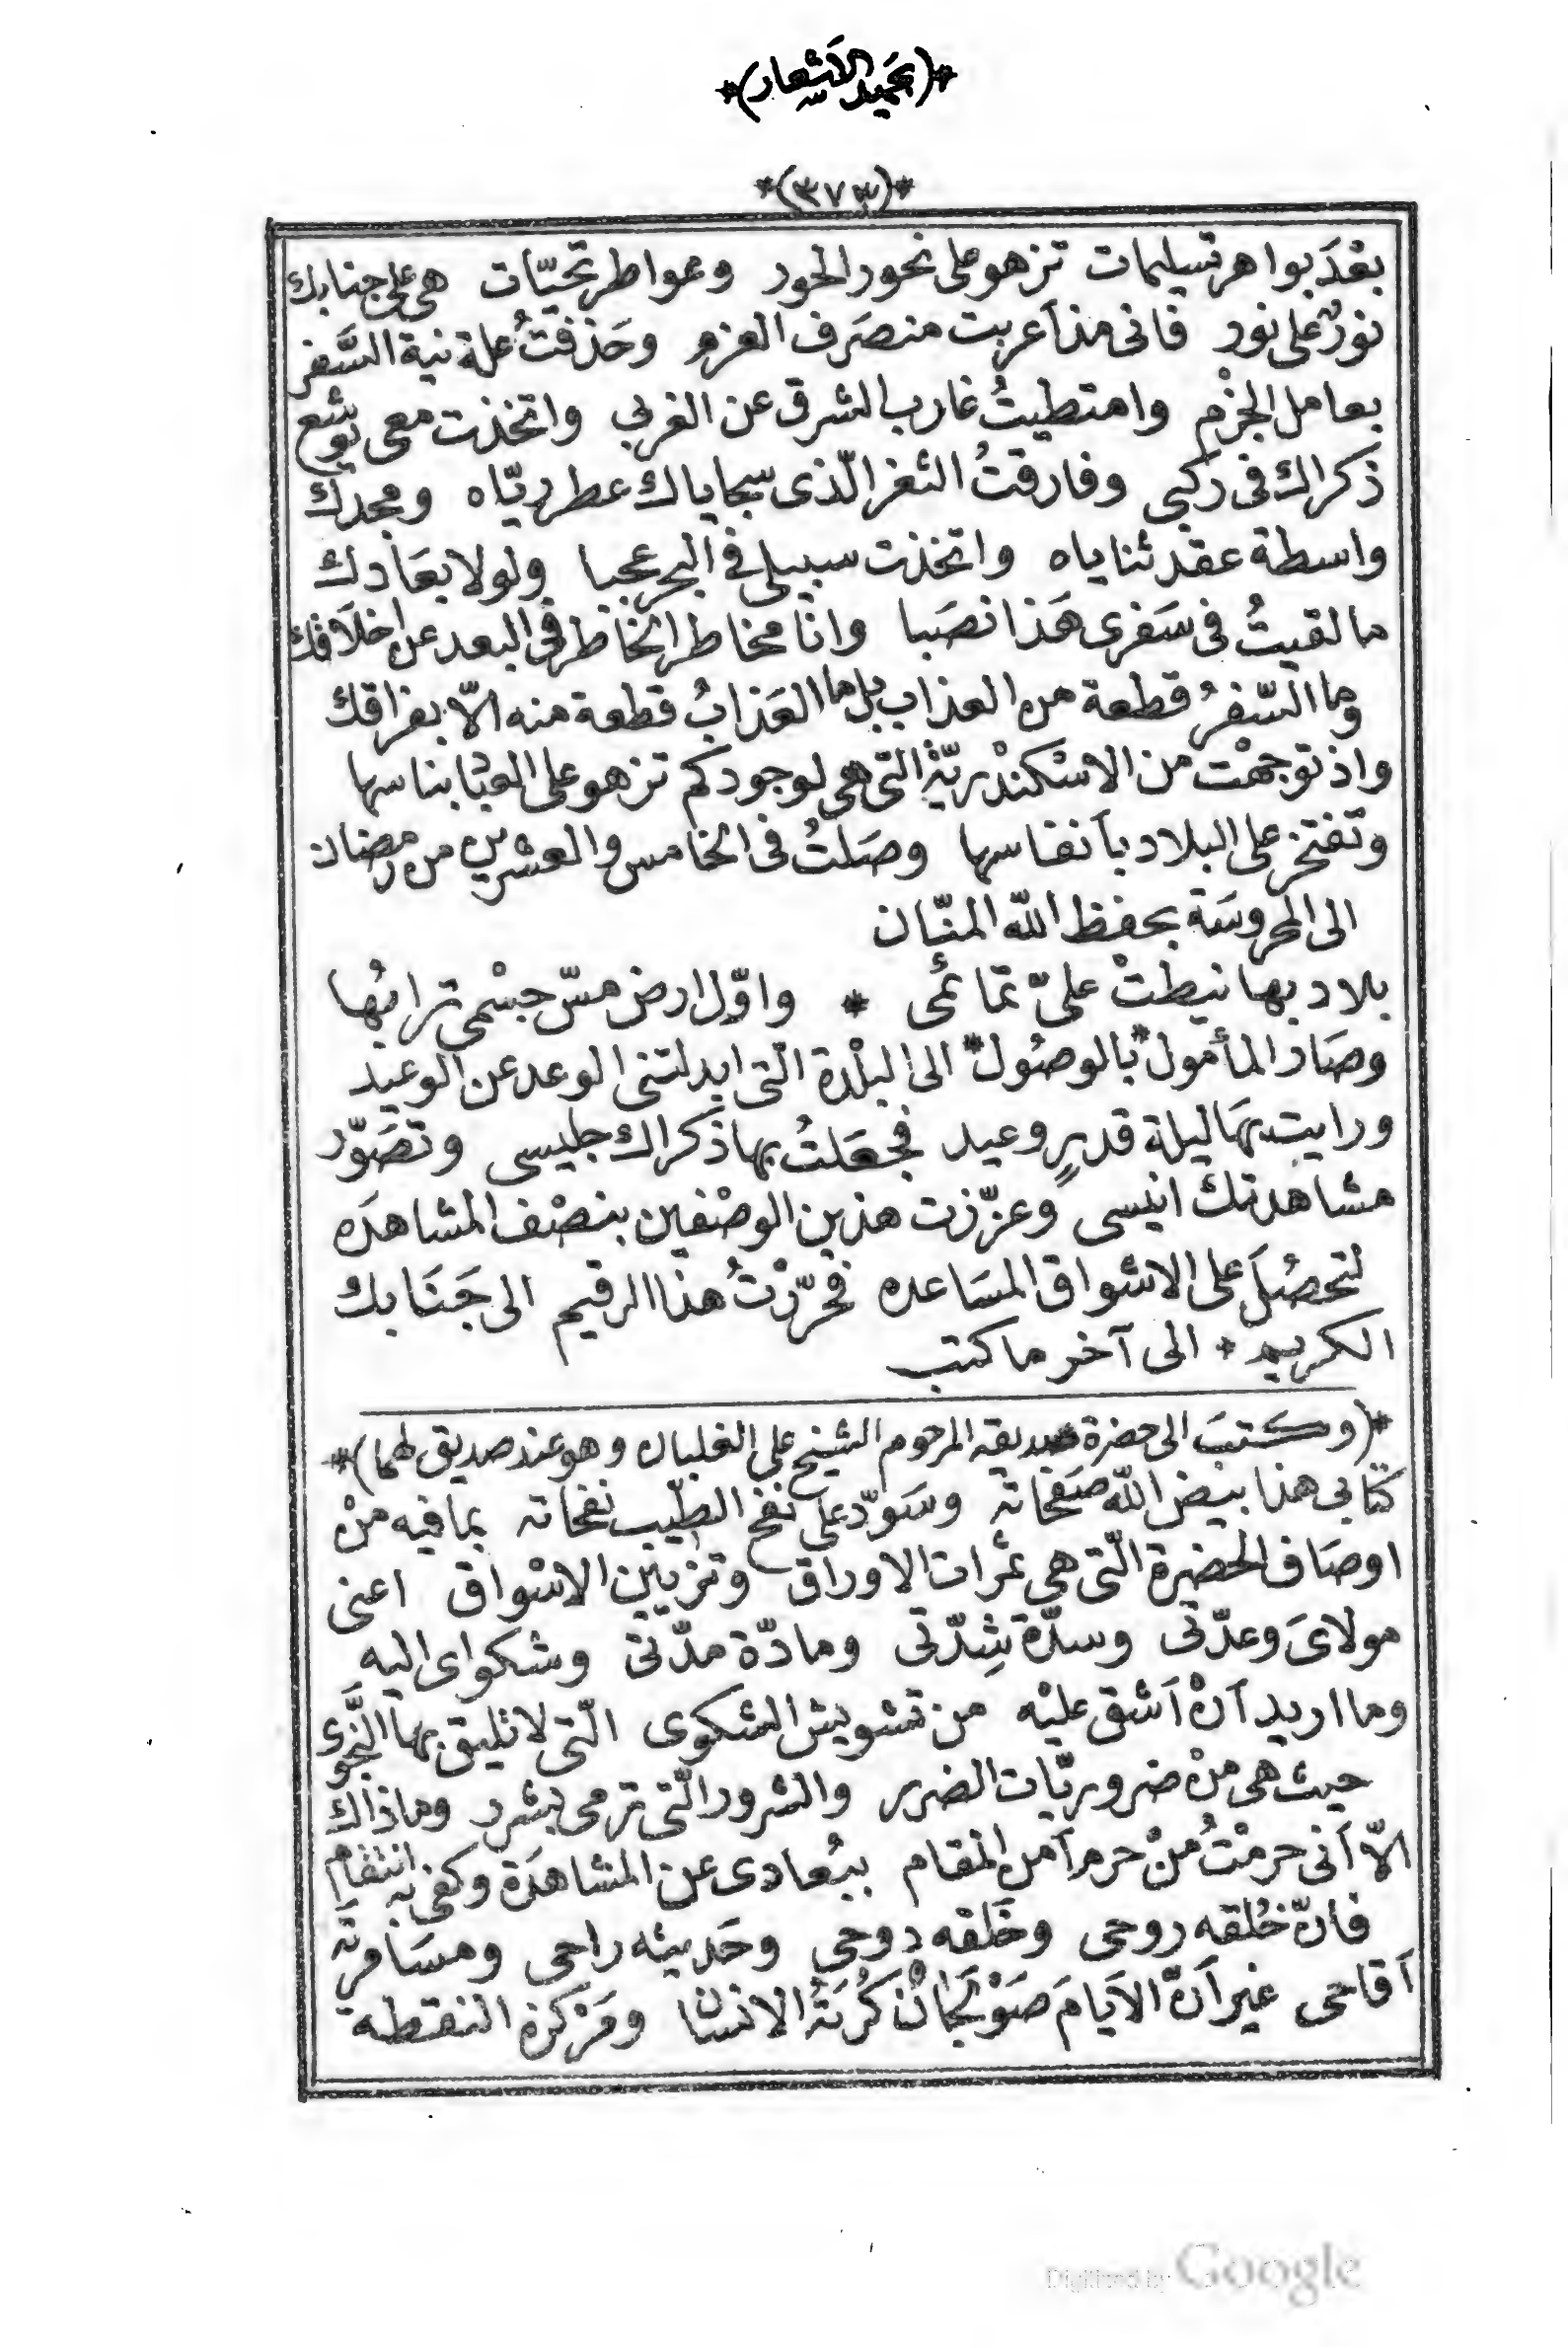 *(بحميد الاشعار)*
*(٣٧٣)*
بعْدَ بواهر تسليمات تزهو على نحور الحور وعواطر تحيّات هى على جنابك
نورٌ على نور فانى مذ اَعربت منصَرف العزم وحَذفتُ علة نية السَّفر
بعامل الجزْم وامتطيتُ غارب الشرق عن الغربى واتخذت معى يوشع
ذكراك فى ركبى وفارقتُ الثغر الّذى سجاياك عطر ريّاه ومجدك
واسطة عقد ثناياه واتخذت سبيلى فى البحر عجبا ولولا بعَادك
ما لقيتُ فى سَفرى هَذا نصَبا وانا مخاطر الخاطر فى البعد عن اخلاقك
وما السّفرُ قطعة من العذاب بل ما العَذابُ قطعة منه الاّ بفراقك
واذ توجهْت من الاسْكنْدريّة التى هى لوجودكم تزهو على المهْا بناسها
وتفتخر على البلاد بأنفاسها وصَلتُ فى الخامس والعشرين من رمضان
الى المحروسَة بحفظ اللّه المنّان
بلاد بها نيطتْ علىّ تمائمى * واوّل ارض مسّ جسْمى ترابُها
وصَار المأمول * بالوصُول * الى البلْدة الّتى ابدلتنى الوعد عن الوعيد
ورايت بهَا ليلة قدرٍ وعيد فجعَلتُ بها ذكراك جليسى وتصَوّر
مشاهدتك انيسى وعزّزت هذين الوصْفين بنصْف المشاهدَه
لتحصُلَ على الاشواق المسَاعده فحرّرْتُ هذا الرقيم الى جَنَابك
الكريم * الى آخر ما كتب
*(وكتبَ الى حضرة صديقه المرحوم الشيخ على الغلبان وهو عند صديق لهما)*
كتابى هذا بيّض اللّه صَفحاته وسَوّد على نفح الطّيب نفحاته بما فيه منْ
اوصَاف الحضرة الّتى هى ثمرات الاوراق وتزيين الاسْواق اعنى
مولاىَ وعدّتى وسدّة شِدّتى ومادّة مدّتى وشكواى اليه
وما اريد اَنْ اَشق عليْه من تشويش الشكوى الّتى لا تليق بها النَّجوى
حيث هى منْ ضروريّات الضرر والشرور الّتى ترمى بشرر وما ذاك
الاّ اَنى حرمْتُ منْ حرم اَمن المقام ببُعادى عن المشاهدَة وكفى به انتقام
فانّ خُلقه روحى وخَلقه دوحى وحَديثه راحى ومسَامرتَه
اَقاحى غير اَنّ الاَيامَ صَوْلجَانْ كُرَةُ الانسَان ومَرْكزة النقطة